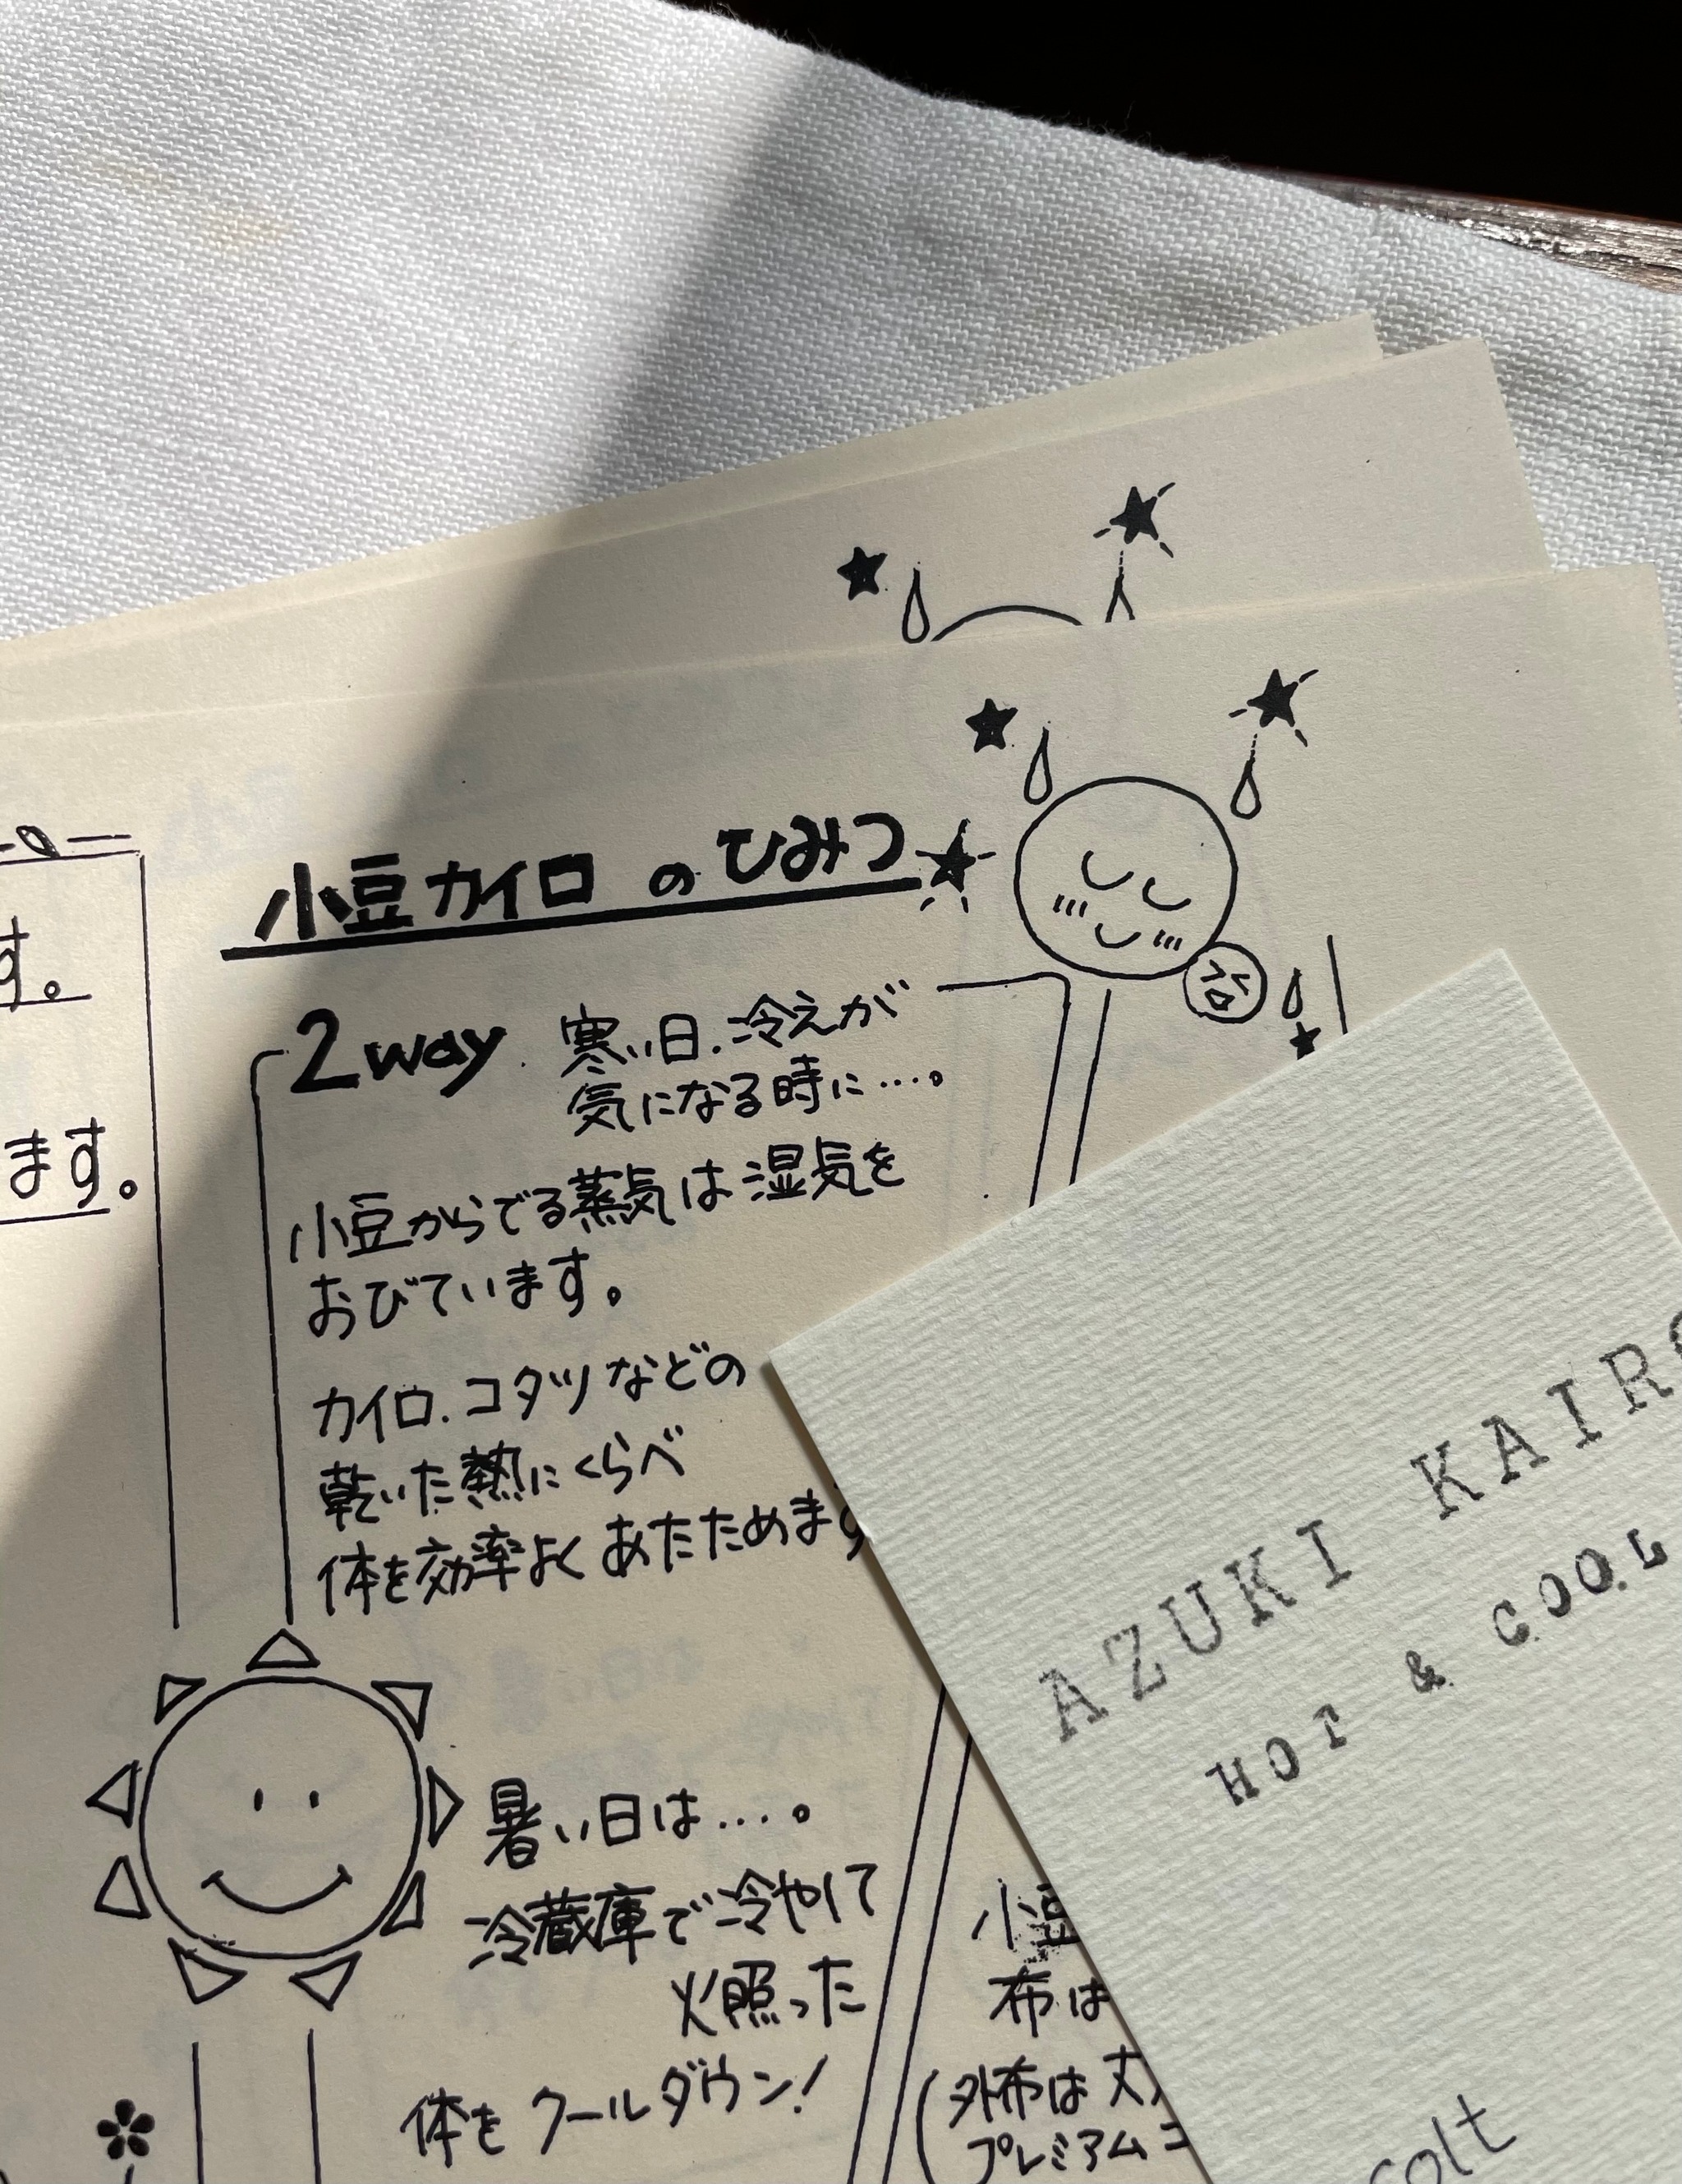 す。
ます。
小豆カイロ の ひみつ
2way 寒い日.冷えが
気になる時に…。
小豆からでる蒸気は湿気を
おびています。
カイロ.コタツなどの
乾いた熱にくらべ
体を効率よくあたためます
暑い日は…。
冷蔵庫で冷やして
火照った
体をクールダウン!
小豆
布は
(外布は
プレミアムコ
AZUKI KAIRO
HOT & COOL